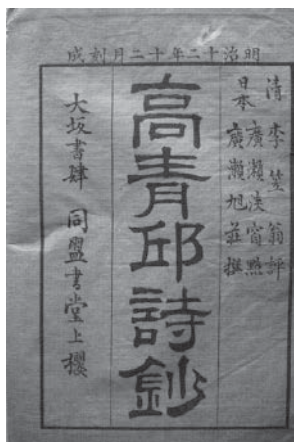 明治十二年十二月刻成
清 李笠翁評
日本 廣瀬淡窗點
廣瀬旭莊撰
高青邱詩鈔
大坂書肆 同盟書堂上櫻